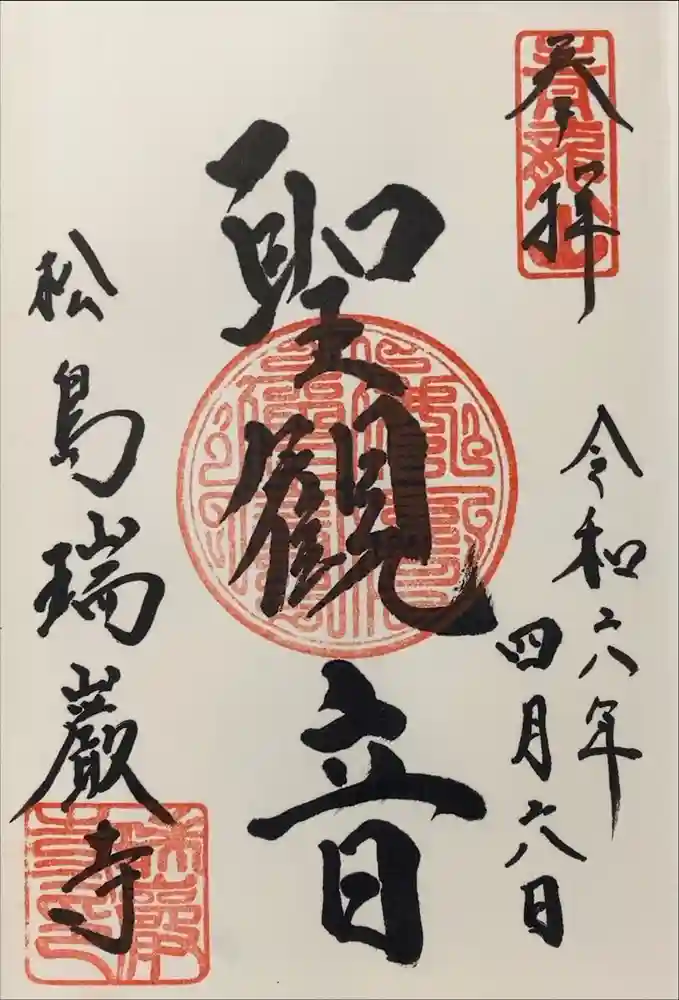 奉拝
令和六年
四月六日
聖観音
松島瑞巌寺
青龍山